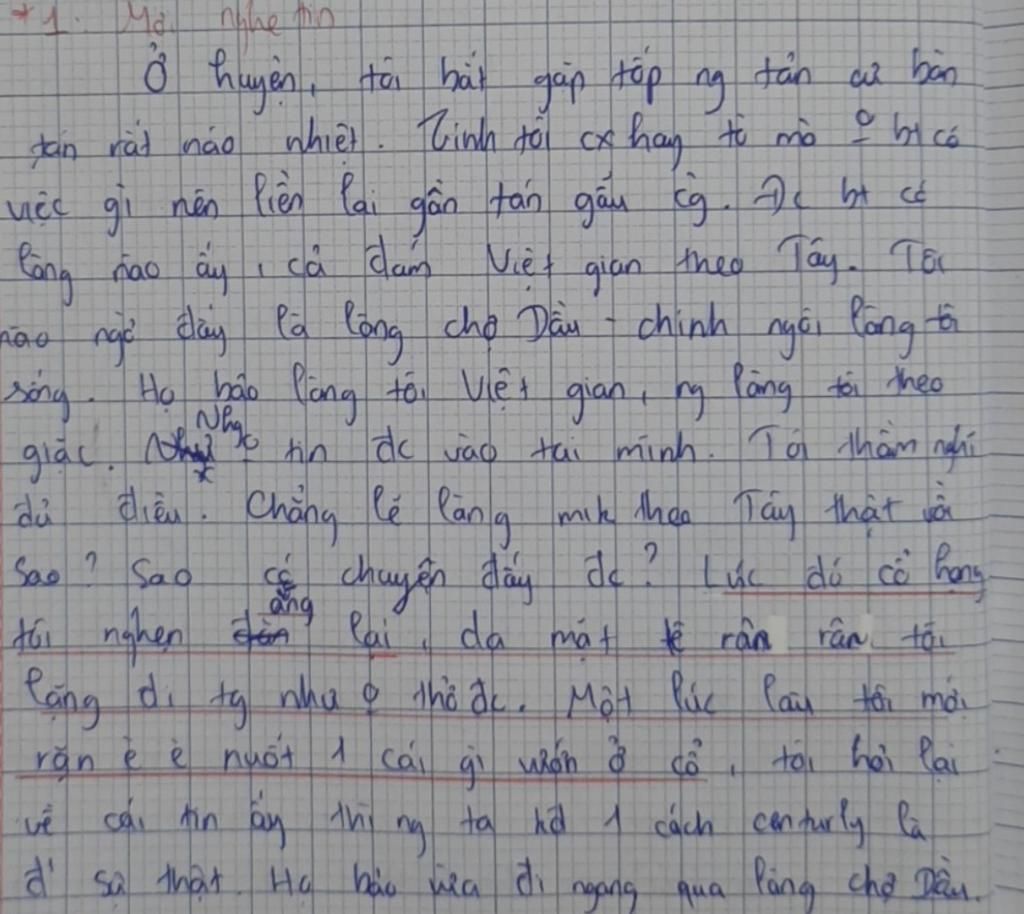 *1. Mới nghe tin
Ở huyện, tôi bắt gặp tốp ng tản cư bàn
tán rất náo nhiệt. Tính tôi cx hay tò mò o bt có
việc gì nên liền lại gần tán gẫu cg. Đc bt có
làng nào ấy, cả đám Việt gian theo Tây. Tôi
nào ngờ đây là làng chợ Dầu - chính ngôi làng tôi
sống. Họ bảo làng tôi Việt gian, ng làng tôi theo
giặc. Nhục tin đc vào tai mình. Tôi thầm nghĩ
đủ điều. Chẳng lẽ làng mik theo Tây thật rồi
sao? Sao có chuyện đấy đc? Lúc đó cổ họng
tôi nghẹn ắng lại, da mặt tê rân rân, tôi
lặng đi, tg như o thở đc. Một lúc lâu tôi mới
rặn è è nuốt 1 cái gì vướn ở cổ, tôi hỏi lại
về cái tin ấy thì ng ta 1 cách là
sự thật. Họ bảo vừa đi ngang qua làng chợ Dầu.